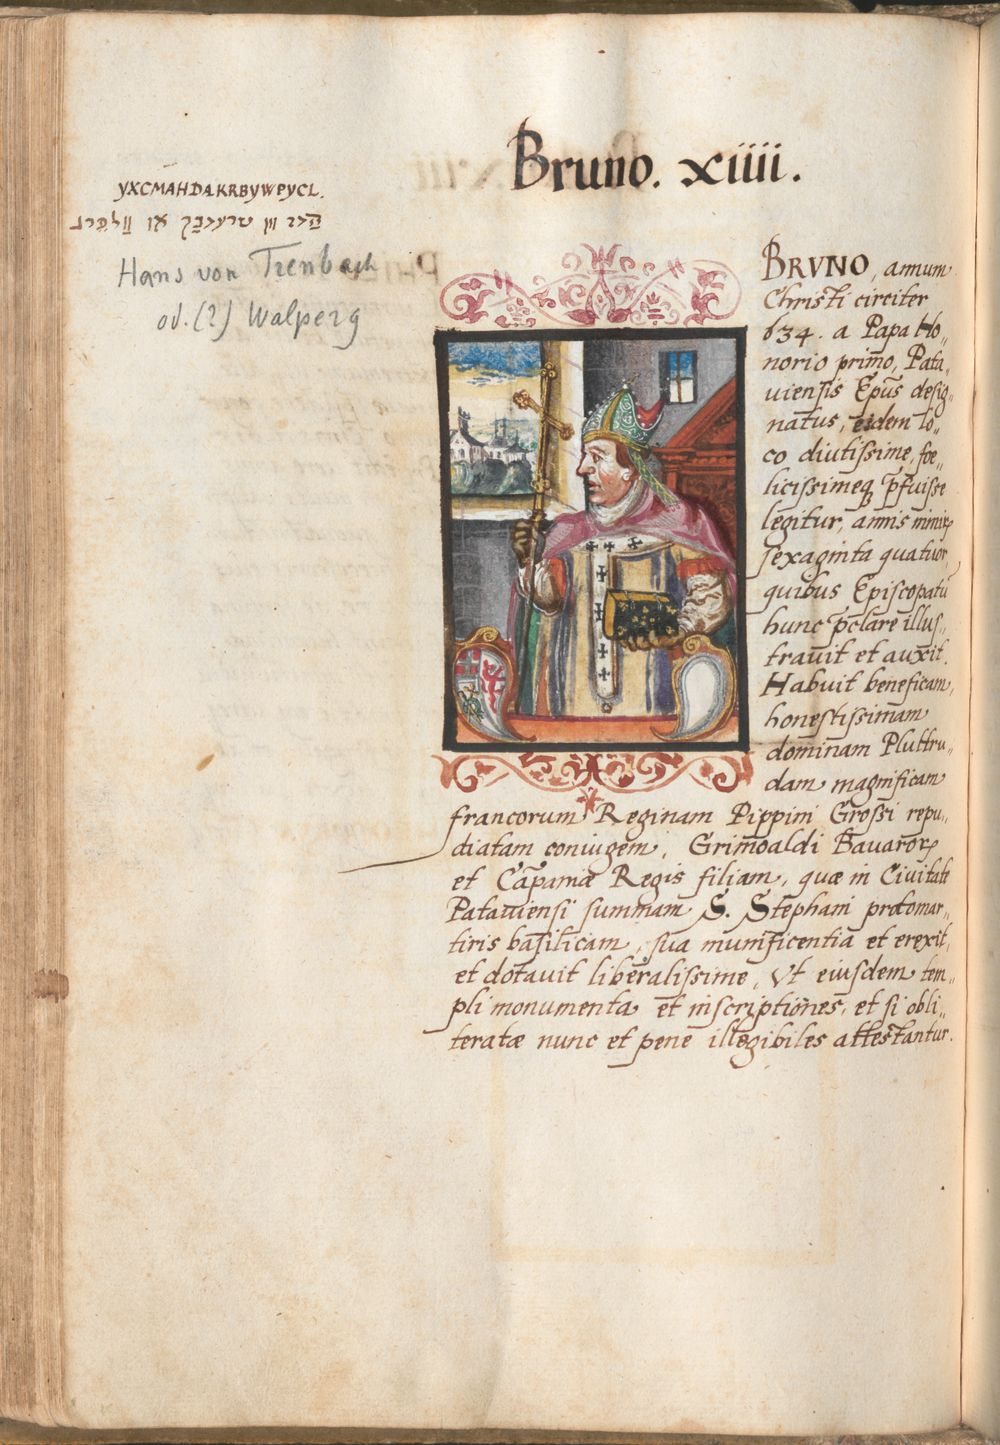 Bruno. xiiii.
YXCMAHDAKRBYWPYCL.
Hans von Trenbach
od. (?) Walperg
BRVNO, annum
Christi circiter
634. a Papa Ho„
norio prim̄o, Pata„
uiensis Ep̄us desig„
natus, eidem lo„
co diutissime, foe„
licissimeq; p̄fuisse
legitur, annis nimir
sexaginta quatuor,
quibus Episcopatū
hunc p̄clare illus„
trauit et auxit.
Habuit beneficam,
honestissimam
dominam Pluttru„
dam magnificam
francorum Reginam Pippini Grossi repu„
diatam coniugem, Grimoaldi Bauaror
et Cāpaniæ Regis filiam, quæ in Ciuitate
Patauiensi summam S. Stephani protomar„
tiris basilicam, sua munificentia et erexit,
et dotauit liberalissime, Vt eiusdem tem„
pli monumenta et inscriptiones, et si obli„
teratæ nunc et pene illegibiles attestantur.